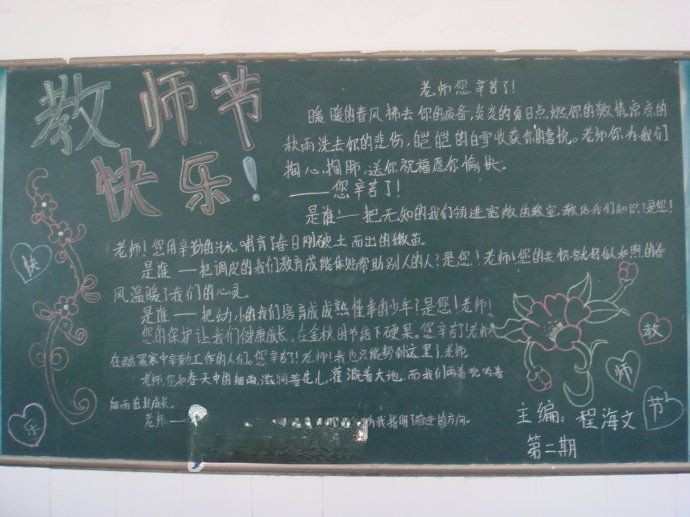 教师节
快乐!
老师您辛苦了!
暖暖的春风拂去你的疲备,炎炎的夏日点燃你的激情,凉凉的
秋雨洗去你的悲伤,皑皑的白雪收获你的喜悦。老师你为我们
掏心,掏肺,送你祝福愿你愉快。
——您辛苦了!
是谁!—把无知的我们领进宽敞的教室,教给我们知识?是您!
老师!您用辛勤的汗水,哺育了春日刚破土而出的嫩苗。
是谁——把调皮的我们教育成能体贴帮助别人的人?是您!老师!您的关怀就好似和煦的春
风温暖了我们的心灵。
是谁——把幼小的我们培育成成熟懂事的少年?是您!老师!
您的保护让我们健康成长。在金秋时节结下硕果。您辛苦了!老师
在酷暑寒中辛勤工作的人们。您辛苦了!老师!我也只能帮到这里了,老师
老师,您如春天中的细雨,滋润着花儿,灌溉着大地,而我们两着吮吸着
细雨茁壮成长。
老师——
为我指明了前进的方向。
快
乐
教
师
节
主编:程海文
第二期